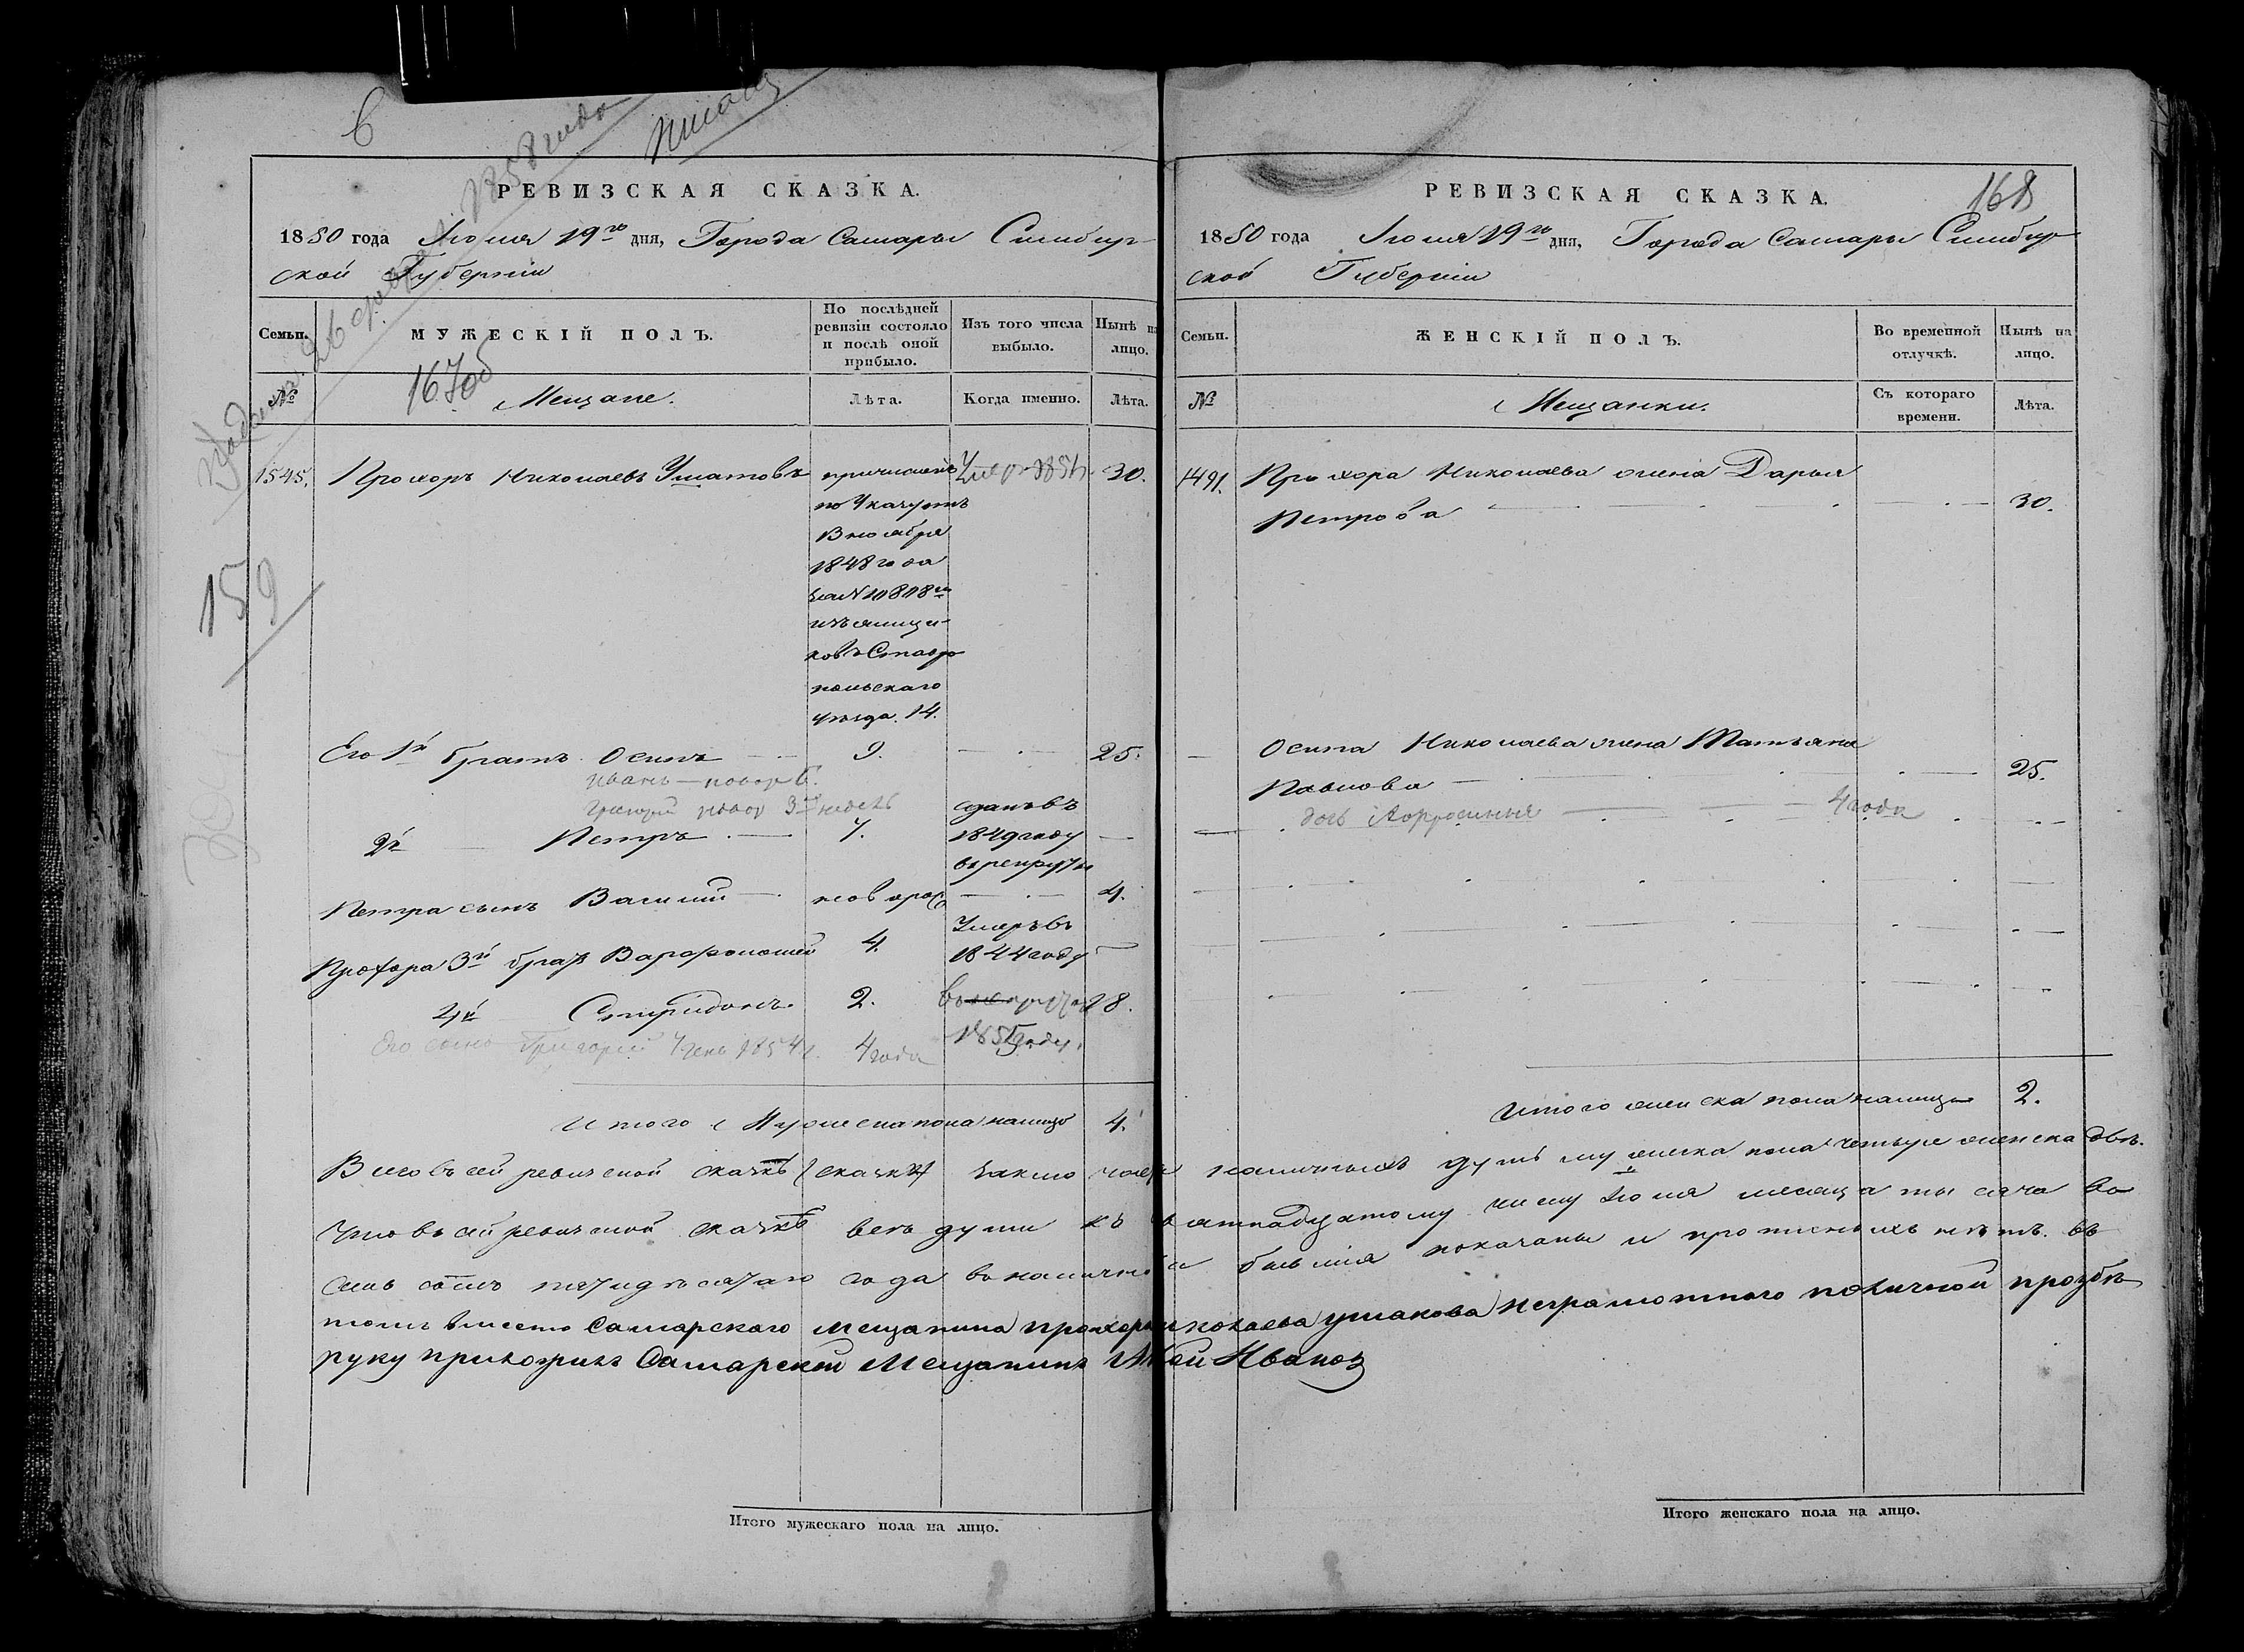 6
1858 года
РЕВИЗСКАЯ СКАЗКА.
1850 года Іюля 19го дня, Города Самары Симбир-
ской Губерніи
Семьи.
МУЖЕСКІЙ ПОЛЪ.
По послѣдней ревизіи состояло и послѣ оной прибыло.
Изъ того числа выбыло.
Нынѣ на лицо.
№
Мещане.
Лѣта.
Когда именно.
Лѣта.
159
1545.
Прохоръ Николаевъ
причисленъ
30.
по Указу отъ
8 ноября
1848 года
за № 10808м
изъ ямщи-
ковъ Ставро
польскаго
уѣзда. 14.
Его 1й братъ Осипъ
9.
25.
Иванъ — новор 6.
Григорій новор 3 недель
2й
Петръ
7.
сданъ въ
1849 году
въ рекруты
Петра сынъ Василій
новорож
4.
Прохора 3й братъ Варфоломей
4
Умеръ въ
1844 году
4й
Спиридонъ
2.
18.
Его сынъ Григорій
4 года
Итого Мужеска пола налицо
4.
РЕВИЗСКАЯ СКАЗКА.
168
1850 года Іюля 19го дня, Города Самары Симбир
ской Губерніи
Семьи.
ЖЕНСКІЙ ПОЛЪ.
Во временной отлучкѣ.
Нынѣ на лицо.
№
Мещанки.
Съ котораго времени.
Лѣта.
1491.
Прохора Николаева жена Дарья
Петрова
30.
Осипа Николаева жена Татьяна
Павлова
25.
4 года
Итого женска пола налицо
2.
Всего въ сей ревизской сказкѣ наличныхъ душъ мужеска пола четыре женска двѣ.
Что въ сей ревизской сказкѣ всѣ души къ девятнадцатому числу Іюля месяца тысяча во
семь сотъ пятидесятаго года въ наличности бывшія показаны и прописныхъ нѣтъ. въ
томъ вместо Самарскаго мещанина прохора николаева ушакова неграмотнаго поличной прозбѣ
руку приложилъ Самарской Мещанинъ Иванов
Итого мужескаго пола на лицо.
Итого женскаго пола на лицо.